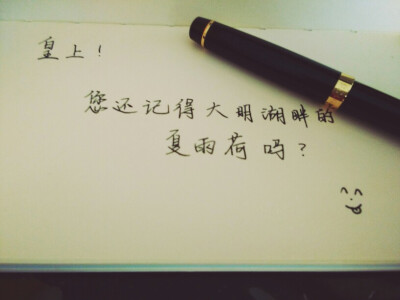 皇上！
您还记得大明湖畔的
夏雨荷吗？